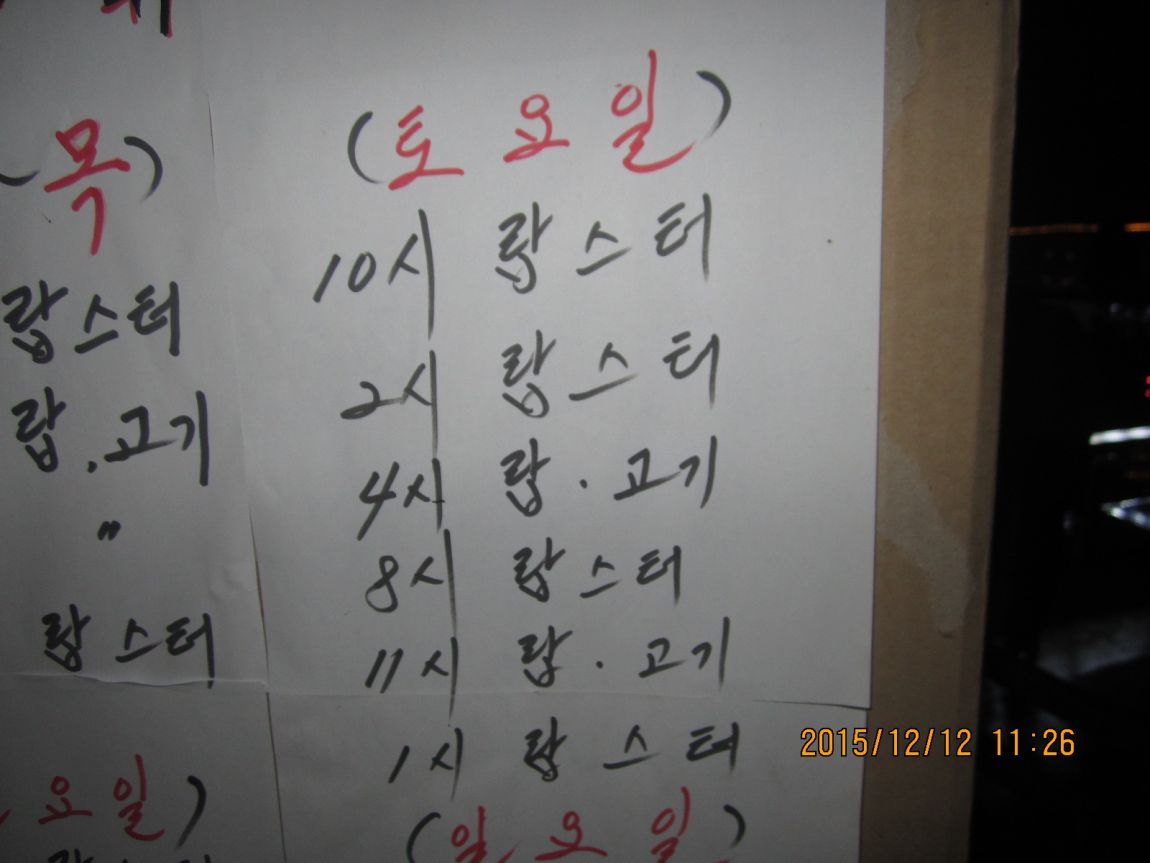 (목)
랍스터
랍.고기
〃
랍스터
요일)
(토요일)
10시 랍스터
2시 랍스터
4시 랍.고기
8시 랍스터
11시 랍.고기
1시 랍스터
(일요일)
2015/12/12 11:26